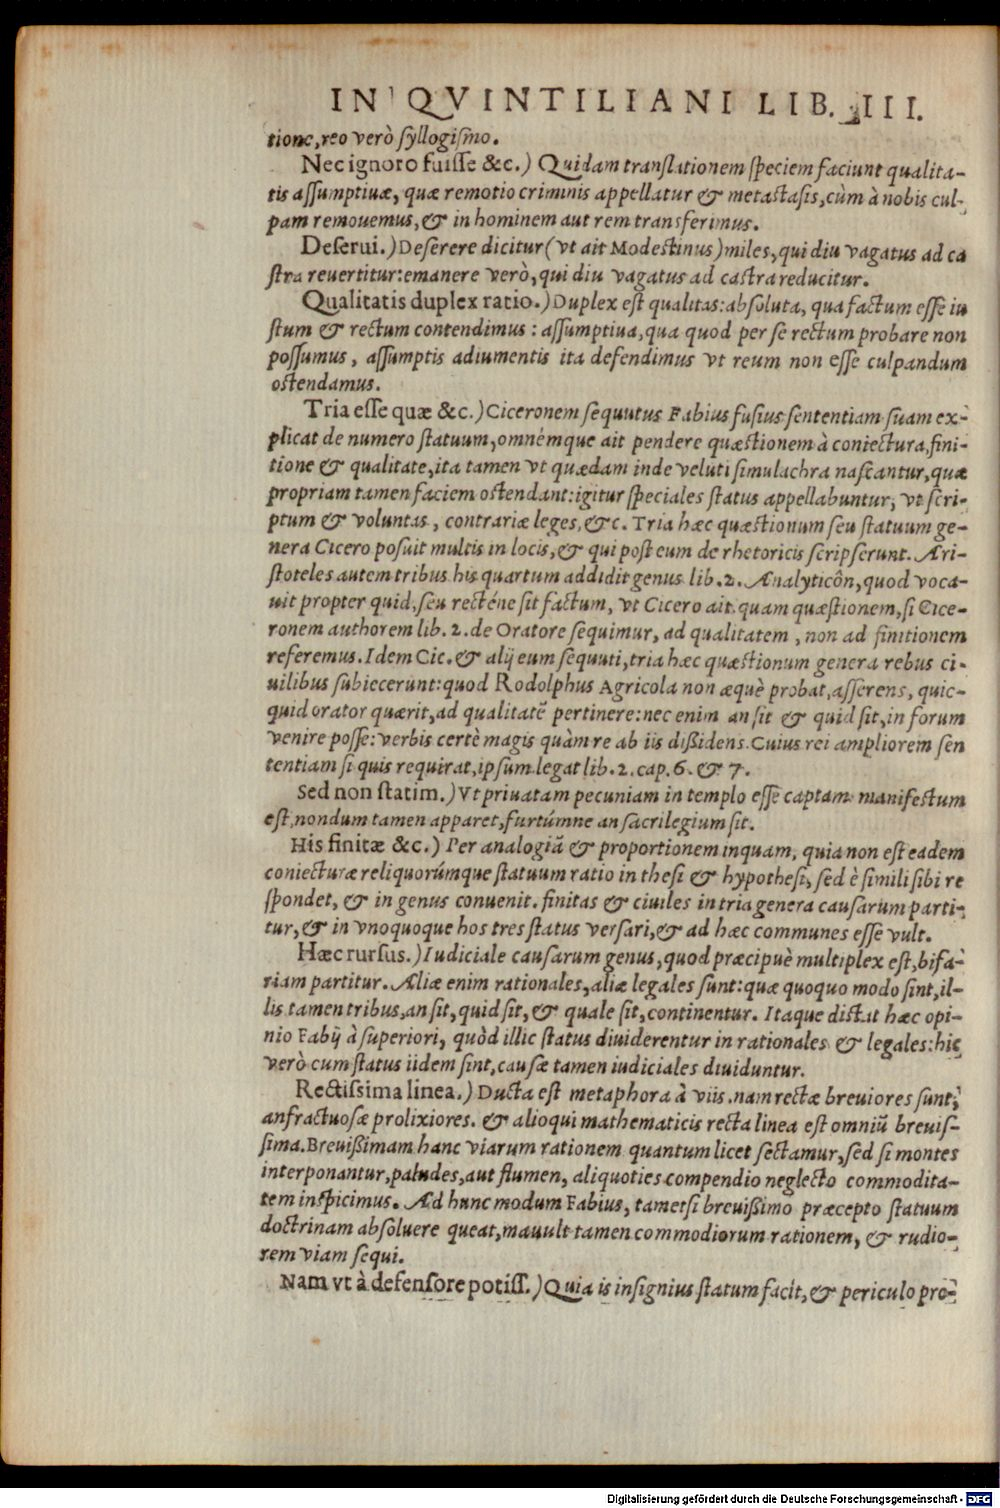 IN QVINTILIANI LIB. III.
tione, reo verò syllogismo.
Nec ignoro fuisse &c.) Quidam translationem speciem faciunt qualita-
tis assumptiuæ, quæ remotio criminis appellatur & metastasis, cùm à nobis cul-
pam remouemus, & in hominem aut rem transferimus.
Deserui.) Deserere dicitur (vt ait Modestinus) miles, qui diu vagatus ad ca
stra reuertitur: emanere verò, qui diu vagatus ad castra reducitur.
Qualitatis duplex ratio.) Duplex est qualitas: absoluta, qua factum esse iu
stum & rectum contendimus: assumptiua, qua quod per se rectum probare non
possumus, assumptis adiumentis ita defendimus vt reum non esse culpandum
ostendamus.
Tria esse quæ &c.) Ciceronem sequutus Fabius fusius sententiam suam ex-
plicat de numero statuum, omnémque ait pendere quæstionem à coniectura, fini-
tione & qualitate, ita tamen vt quædam inde veluti simulachra nascantur, quæ
propriam tamen faciem ostendant: igitur speciales status appellabuntur, vt scri-
ptum & voluntas, contrariæ leges, &c. Tria hæc quæstionum seu statuum ge-
nera Cicero posuit multis in locis, & qui post eum de rhetoricis scripserunt. Ari-
stoteles autem tribus his quartum addidit genus lib. 2. Analyticôn, quod voca-
uit propter quid, seu recténe sit factum, vt Cicero ait. quam quæstionem, si Cice-
ronem authorem lib. 2. de Oratore sequimur, ad qualitatem, non ad finitionem
referemus. Idem Cic. & alij eum sequuti, tria hæc quæstionum genera rebus ci-
uilibus subiecerunt: quod Rodolphus Agricola non æquè probat, asserens, quic-
quid orator quærit, ad qualitatē pertinere: nec enim an sit & quid sit, in forum
venire posse: verbis certè magis quàm re ab iis dißidens. Cuius rei ampliorem sen
tentiam si quis requirat, ipsum legat lib. 2. cap. 6. & 7.
Sed non statim.) Vt priuatam pecuniam in templo esse captam manifestum
est, nondum tamen apparet, furtúmne an sacrilegium sit.
His finitæ &c.) Per analogiā & proportionem inquam, quia non est eadem
coniecturæ reliquorúmque statuum ratio in thesi & hypothesi, sed è simili sibi re
spondet, & in genus conuenit. finitas & ciuiles in tria genera causarum parti-
tur, & in vnoquoque hos tres status versari, & ad hæc communes esse vult.
Hæc rursus.) Iudiciale causarum genus, quod præcipuè multiplex est, bifa-
riam partitur. Aliæ enim rationales, aliæ legales sunt: quæ quoquo modo sint, il-
lis tamen tribus, an sit, quid sit, & quale sit, continentur. Itaque distat hæc opi-
nio Fabij à superiori, quòd illic status diuiderentur in rationales & legales: hic
verò cum status iidem sint, causæ tamen iudiciales diuiduntur.
Rectissima linea.) Ducta est metaphora à viis. nam rectæ breuiores sunt,
anfractuosæ prolixiores. & alioqui mathematicis recta linea est omniū breuis-
sima. Breuißimam hanc viarum rationem quantum licet sectamur, sed si montes
interponantur, paludes, aut flumen, aliquoties compendio neglecto commodita-
tem inspicimus. Ad hunc modum Fabius, tametsi breuißimo præcepto statuum
doctrinam absoluere queat, mauult tamen commodiorum rationem, & rudio-
rem viam sequi.
Nam vt à defensore potiss.) Quia is insignius statum facit, & periculo pro-
Digitalisierung gefördert durch die Deutsche Forschungsgemeinschaft - DFG